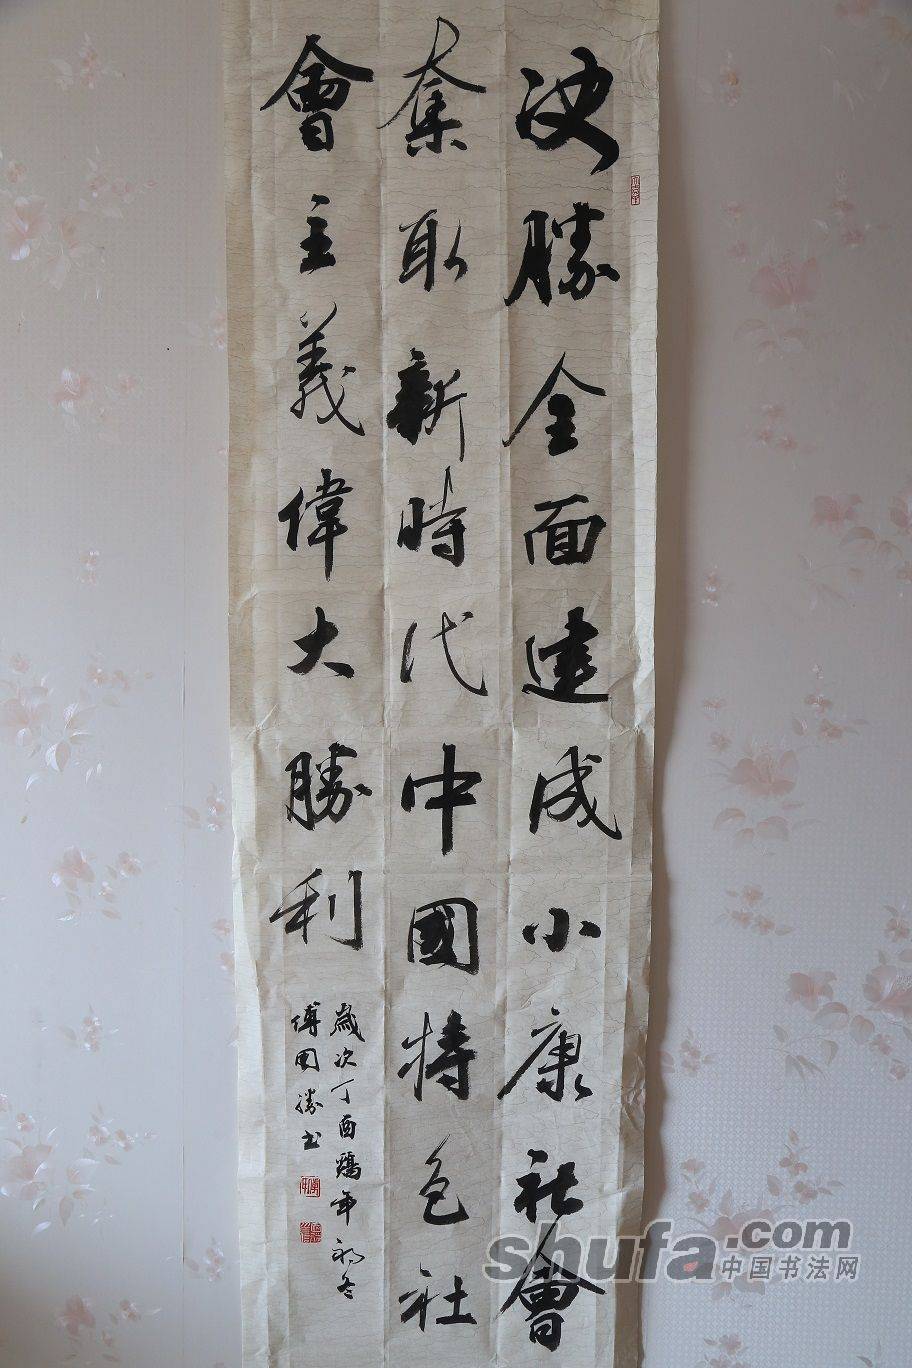 決勝全面建成小康社會
奪取新時代中國特色社
會主義偉大勝利
歲次丁酉鷄年初冬
傅國勝書
shufa.com
中国书法网